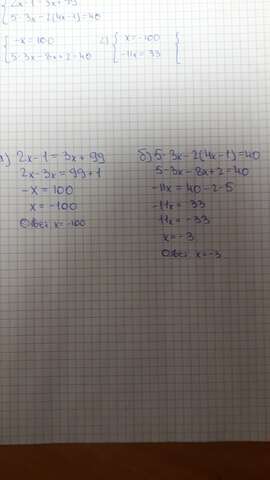 2x-1=3x+99
5-3x-2(4x-1)=40
-x=100
5-3x-8x+2=40
x=-100
-11x=33
а) 2x-1=3x+99
2x-3x=99+1
-x=100
x=-100
Ответ: x=-100
б) 5-3x-2(4x-1)=40
5-3x-8x+2=40
-11x=40-2-5
-11x=33
11x=-33
x=-3
Ответ: x=-3